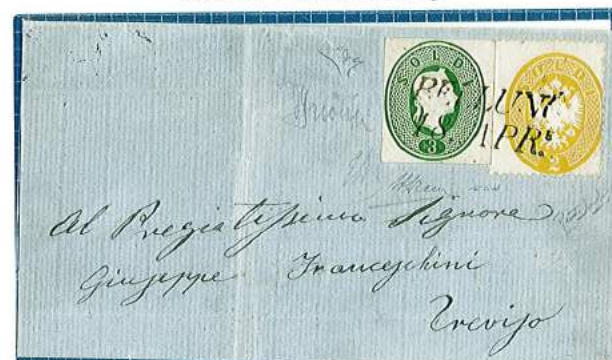 SOLDI
3
SOLDI
2
BELLUNO
18. APR.
Al Pregiatissimo Signore
Giuseppe Franceschini
Treviso